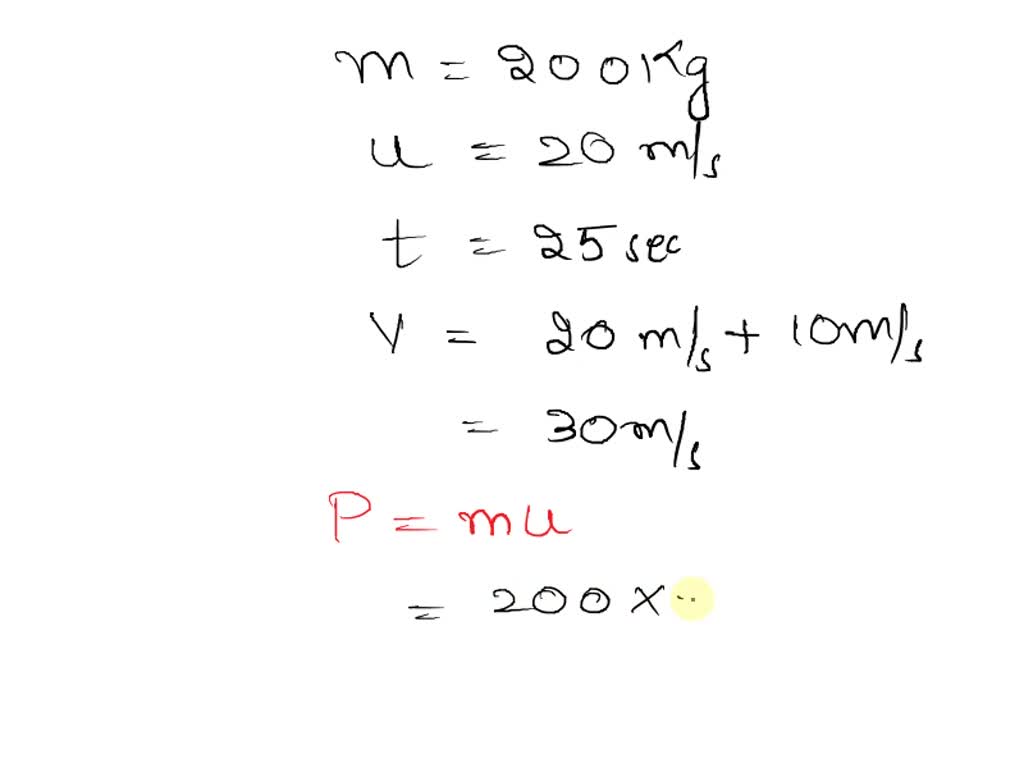 m = 200Kg
u = 20 m/s
t = 25 sec
V = 20 m/s + 10m/s
= 30m/s
P = mu
= 200 ×